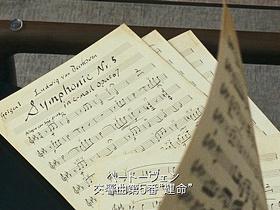 Ludwig van Beethoven
Symphonie Nr. 5
in c-moll opus 67
ベートーヴェン
交響曲第5番“運命”